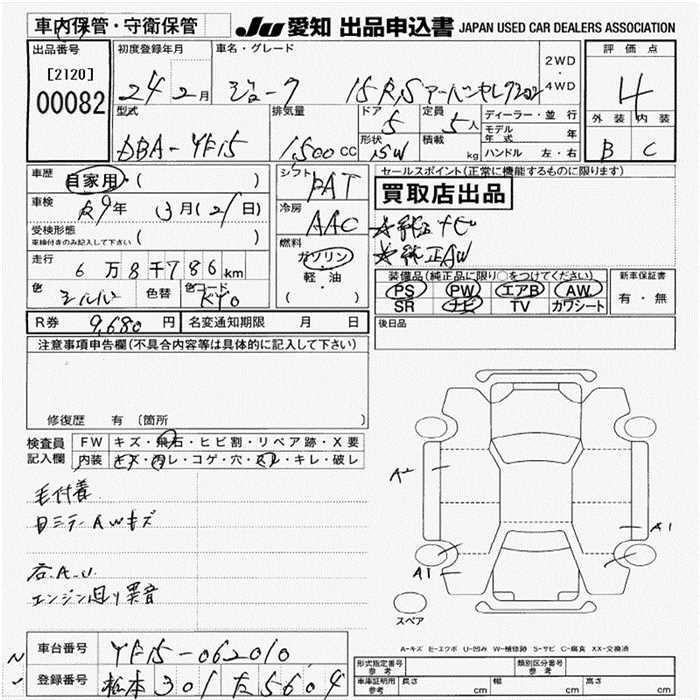 車内保管・守衛保管 JU 愛知 出品申込書 JAPAN USED CAR DEALERS ASSOCIATION
出品番号 初度登録年月 車名・グレード 2WD・4WD 評価点
[2120]
00082 24 2月 ジューク 15RS アーバンセレクション 4
型式 排気量 ドア 定員 ディーラー・並行 外装 内装
DBA-YF15 1,500cc 5 5人 モデル年式 年 B C
形状 SW 積載 kg ハンドル 左・右
車歴 自家用・( ) シフト FAT セールスポイント(正常に機能するものに限ります)
車検 R9年 3月(21日) 冷房 AAC 買取店出品
受検形態 ( ) ☆純正ナビ
車検付きのみ記入して下さい 燃料 ☆純正AW
走行 6万8千786km ガソリン・軽・油 ( ) 装備品(純正品に限り○をつけてください) 新車保証書
色 シルバー 色替 色コード KY0 PS PW エアB AW 有・無
SR ナビ TV カワシート
R券 9,680円 名変通知期限 月 日 後日品
注意事項申告欄(不具合内容等は具体的に記入して下さい)
修復歴 有 (箇所 )
検査員記入欄 FW キズ・飛石・ヒビ割・リペア跡・X要
内装 キズ・汚レ・コゲ・穴・スレ・キレ・破レ
毛付着
ミラー AWキズ
A2
A1
A1
右A.U.
エンジン回り異音
スペア
A-キズ E-エクボ U-凹み W-補修跡 S-サビ C-腐食 XX-交換済
車台番号 YF15-062010
形式指定番号 参考 類別区分番号 参考
登録番号 松本301 た 5604
車庫証明用 参考 長さ cm 幅 cm 高さ cm